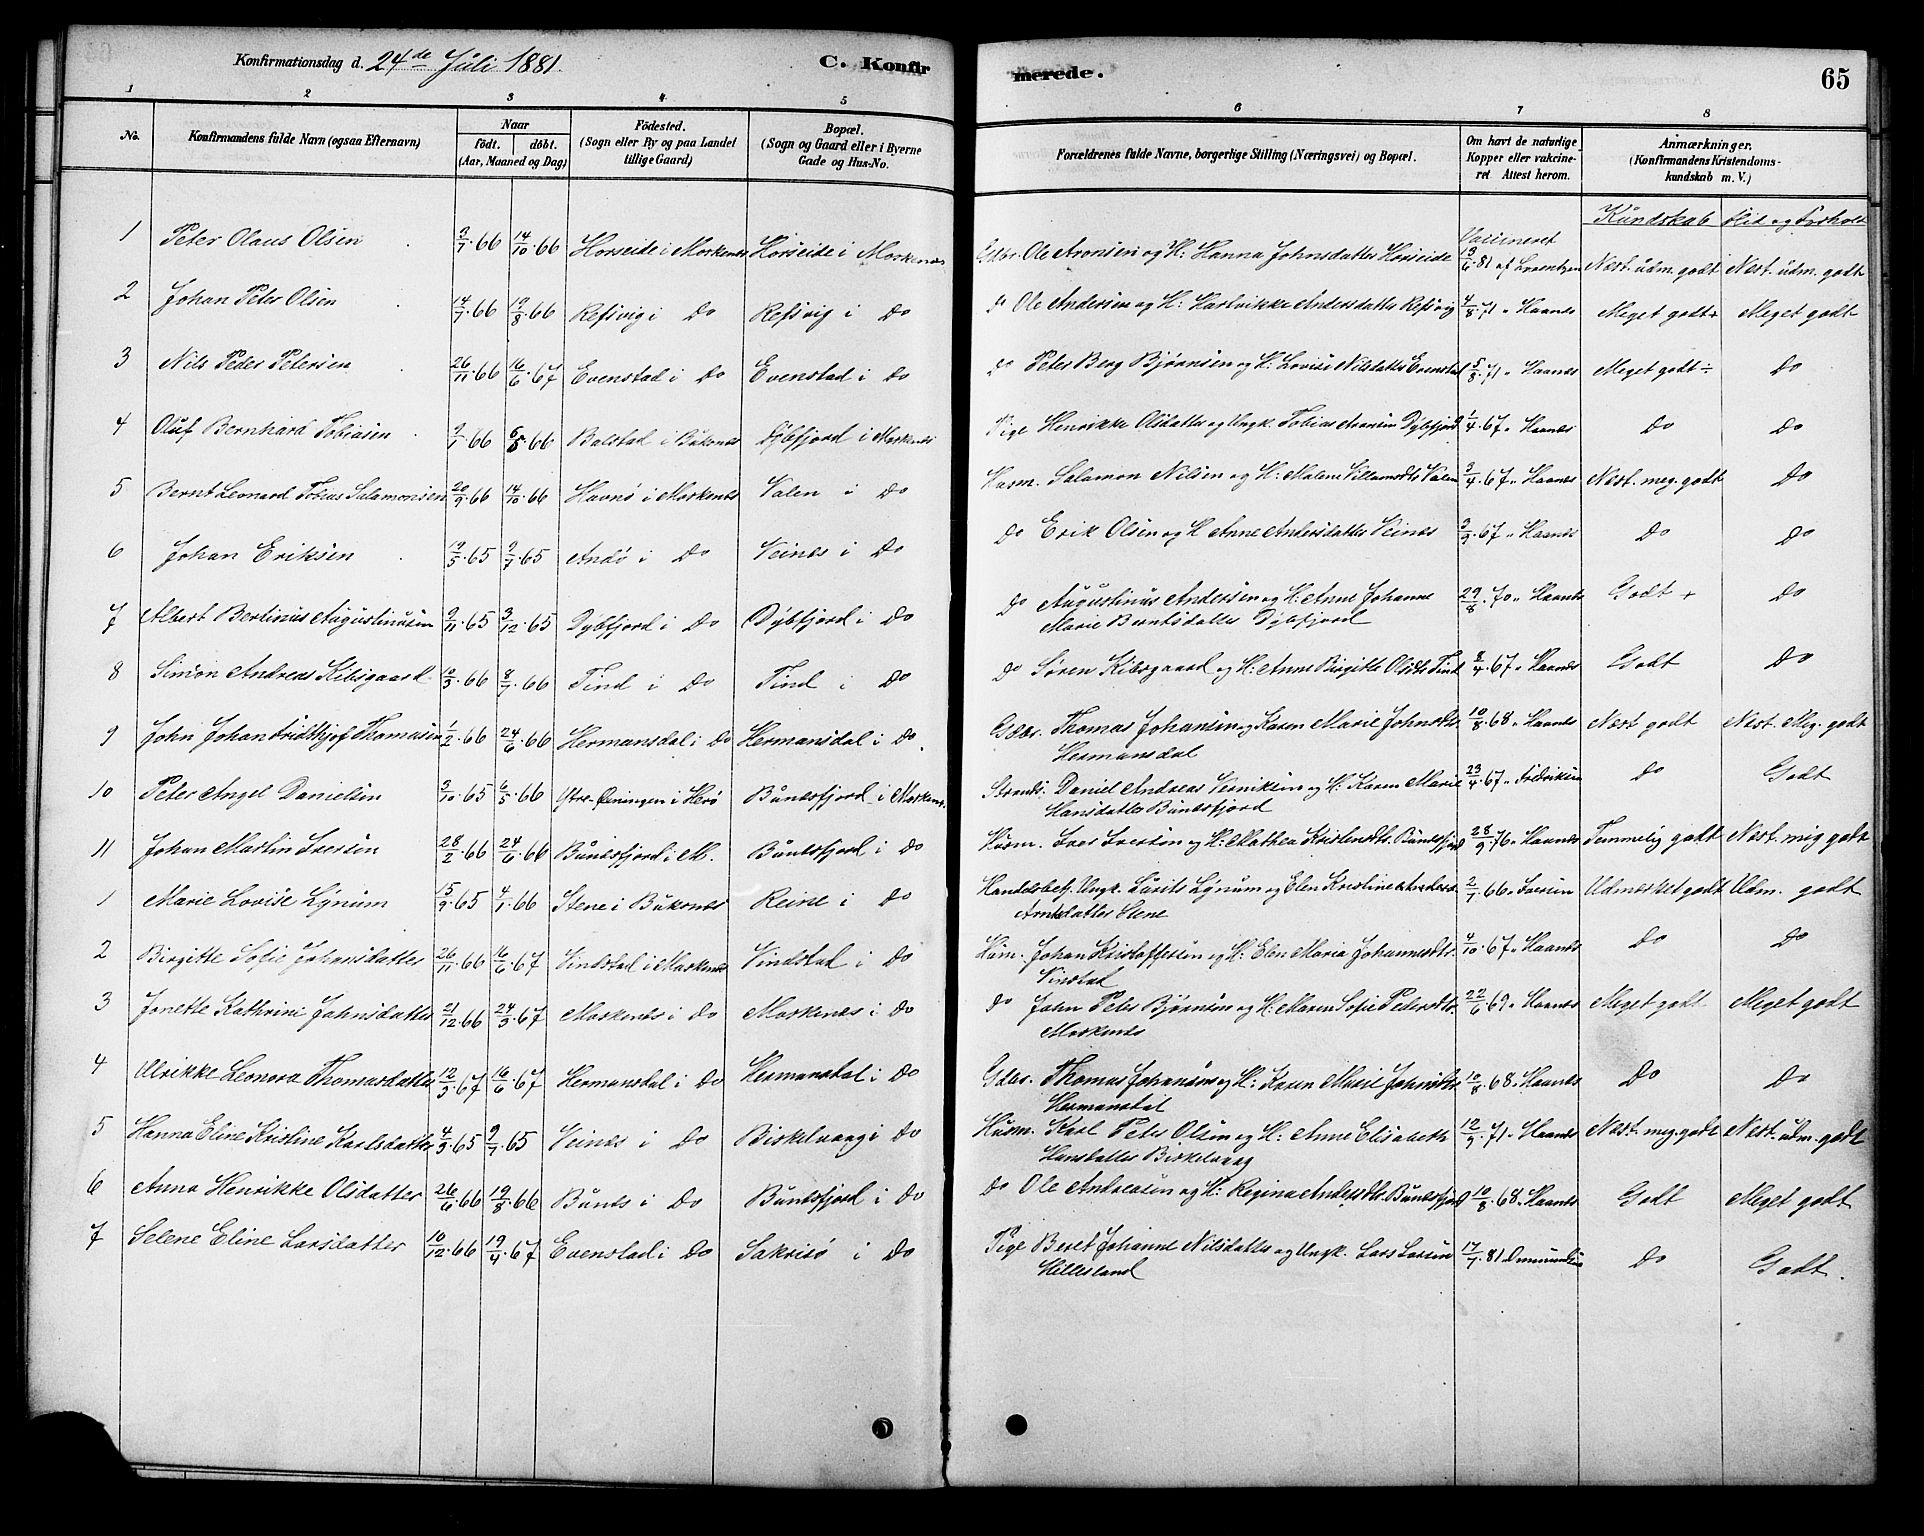 Konfirmationsdag d. 24de Juli 1881.
C. Konfirmerede.
65
1 2 3 4 5 6 7 8
No.
Konfirmandens fulde Navn (ogsaa Efternavn)
Naar
födt. döbt.
(Aar, Maaned og Dag)
Födested.
(Sogn eller By og paa Landet
tillige Gaard)
Bopæl.
(Sogn og Gaard eller i Byerne
Gade og Hus-No.
Forældrenes fulde Navne, borgerlige Stilling (Næringsvei) og Bopæl.
Om havt de naturlige
Kopper eller vakcine-
ret Attest herom.
Anmærkninger.
(Konfirmandens Kristendoms-
kundskab m. V.)
Kundskab Flid og Forhold
Vaccineret
1 Peter Olaus Olsen 3/7.66 14/10.66 Horseide i Moskenes Horseide i Moskenes Gdbr. Ole Aronsen og H: Hanna Johnsdatter Horseide 13/6.81 af Lorentzen Nest. udm. godt Nest. udm. godt
2 Johan Peter Olsen 14/7.66 19/8.66 Refsvig i Do Refsvig i Do do Ole Andersen og H: Hartvikke Andersdatter Refsvig 4/8.71 " Haanes Meget godt+ Meget godt
3 Nils Peder Petersen 26/11.66 16/6.67 Evenstad i Do Evenstad i Do do Peter Berg Bjørnsen og H: Lovise Nilsdatter Evenstad 5/8.71 " Haanes Meget godt÷ Do
4 Oluf Bernhard Tobiasen 9/1.66 6/5.66 Balstad i Buksnes Djbfjord i Moskenes Pige Henrikke Olsdatter og Ungk. Tobias Aronsen Dybfjord 1/4.67 " Haanes Do Do
5 Bernt Leonard Tobias Salamonsen 20/9.66 14/10.66 Havnø i Moskenes Valen i Do Husm. Salamon Nilsen og H: Malene Villumsdtr Valen 3/4.67 " Haanes Nest. meg. godt Do
6 Johan Eriksen 19/5.65 9/7.65 Andø i Do Veines i Do Do Erik Olsen og H Anne Andersdatter Veines 3/9.67 " Haanes Do Do
7 Albert Bertinus Augustinusen 9/11.65 3/12.65 Dybfjord i Do Dybfjord i Do Do Augustinus Andersen og H: Anne Johanne
Marie Berntsdatter Dybfjord 29/8.70 " Haanes Godt + Do
8 Simon Andreas Kibsgaard 12/3.66 8/7.66 Tind i Do Tind i Do Do Søren Kibsgaard og H: Anne Birgitte Olsdtr Tind 8/4.67 " Haanes Godt Do
9 John Johan Fridthjof Thomasen 1/2.66 24/6.66 Hermansdal i Do Hermansdal i Do. Gdbr. Thomas Johansen og Karen Marie Johnsdtr.
Hermansdal 10/8.68 " Haanes Nest godt Nest. Meg. godt
10 Peter Angel Danielsen 3/10.65 6/5.66 i Herø Bunesfjord i Moskenes Strands. Daniel Andreas og H: Karen Marie
Hansdatter Bunesfjord 23/4.67 " Fredriksen Do Godt
11 Johan Martin Iversen 28/2.66 24/6.66 Bunesfjord i M. Bunesfjord i Do Husm. Iver Iversen og H: Mathea Kristensdtr. Bunesfjord 28/9.76 " Haanes Temmelig godt Nest. meg godt
1 Marie Lovise Lynum 15/9.65 4/1.66 Stene i Buksnes Reine i Do Handelsbetj. Ungk. Lurits Lynum og Elen Kristine Anders
Arntsdatter Stene 2/7.66 " Iversen Udmerket godt Udm. godt
2 Birgitte Sofie Johansdatter 26/11.66 16/6.67 Vindstad i Moskenes Vindstad i Do Husm. Johan Kristoffersen og H: Elen Maria Johannesdtr.
Vindstad 4/10.67 " Haanes Do Do
3 Jonette Kathrine Johnsdatter 21/12.66 24/3.67 Moskenes i Do Moskenes i Do Do John Peter Bjørnsen og H: Maren Sofie Petersdtr.
Moskenes 22/6.69 " Haanes Meget godt Meget godt
4 Ulrikke Leonora Thomasdatter 12/3.67 16/6.67 Hermansdal i Do Hermansdal i Do Gdbr. Thomas Johansen og H: Karen Marie Johnsdtr.
Hermansdal 10/8.68 " Haanes Do Do
5 Hanna Eline Kristine Karlsdatter 4/3.65 9/7.65 Veines i Do Birkelvaag i Do Husm. Karl Peter Olsen og H: Anne Elisabeth
Hansdatter Birkelvaag 12/9.71 " Haanes Nest. meg. godt Nest. udm. godt
6 Anna Henrikke Olsdatter 26/6.66 19/8.66 Bunes i Do Bunesfjord i Do Do Ole Andreasen og H: Regina Andersdtr. Bunesfjord 10/8.68 " Haanes Godt Meget godt
7 Selene Eline Larsdatter 10/12.66 19/4.67 Evenstad i Do Sakrisø i Do Pige Beret Johanne Nilsdatter og Ungk. Lars Larsen
Hillesland 17/7.81 Do Godt.